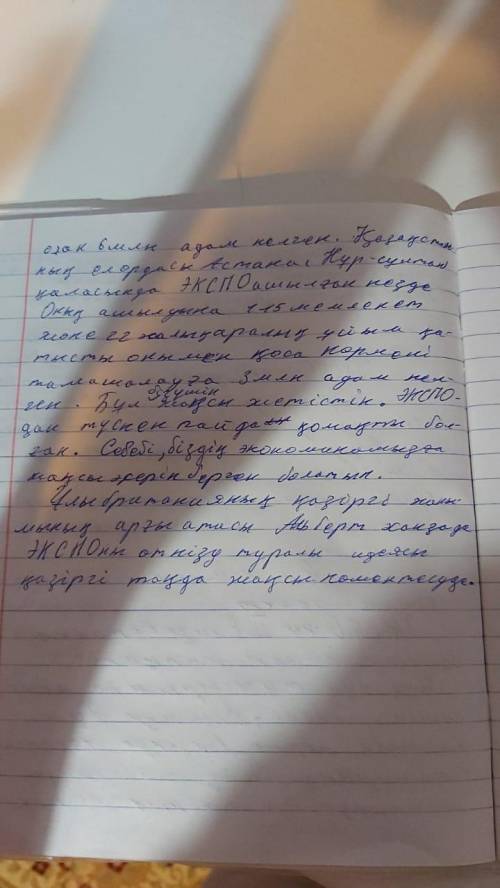 озак 6млн адам келген. Қазақстан
ның елордасы Астана( Нұр-султан
қаласында ЭКСПО ашылған кезде
Оның ашылуына 115 мемлекет
және 22 халықаралық ұйым қа-
тысты онымен қоса көрмені
тамашалауға 3млн адам кел-
ген. Бұл біз үшін жақсы жетістік. ЭКСПО-
дан түскен пайда қомақты бол-
ған. Себебі, біздің экономикамызға
жақсы әсерін берген болатын.
Ұлыбританияның қазіргі ханы-
мының арғы атасы Альберт ханзада
ЭКСПОны өткізу туралы идеясы
қазіргі таңда жақсы көмектесуде.